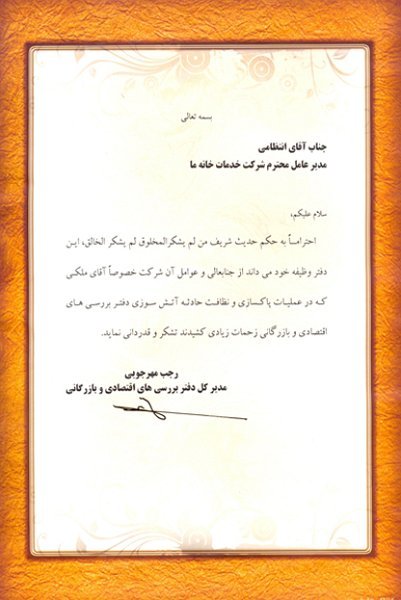 بسمه تعالی
جناب آقای انتظامی
مدیر عامل محترم شرکت خدمات خانه ما
سلام علیکم،
احتراماً به حکم حدیث شریف من لم یشکرالمخلوق لم یشکر الخالق، این
دفتر وظیفه خود می داند از جنابعالی و عوامل آن شرکت خصوصاً آقای ملکی
که در عملیات پاکسازی و نظافت حادثه آتش سوزی دفتر بررسی های
اقتصادی و بازرگانی زحمات زیادی کشیدند تشکر و قدردانی نماید.
رجب مهرجویی
مدیر کل دفتر بررسی های اقتصادی و بازرگانی